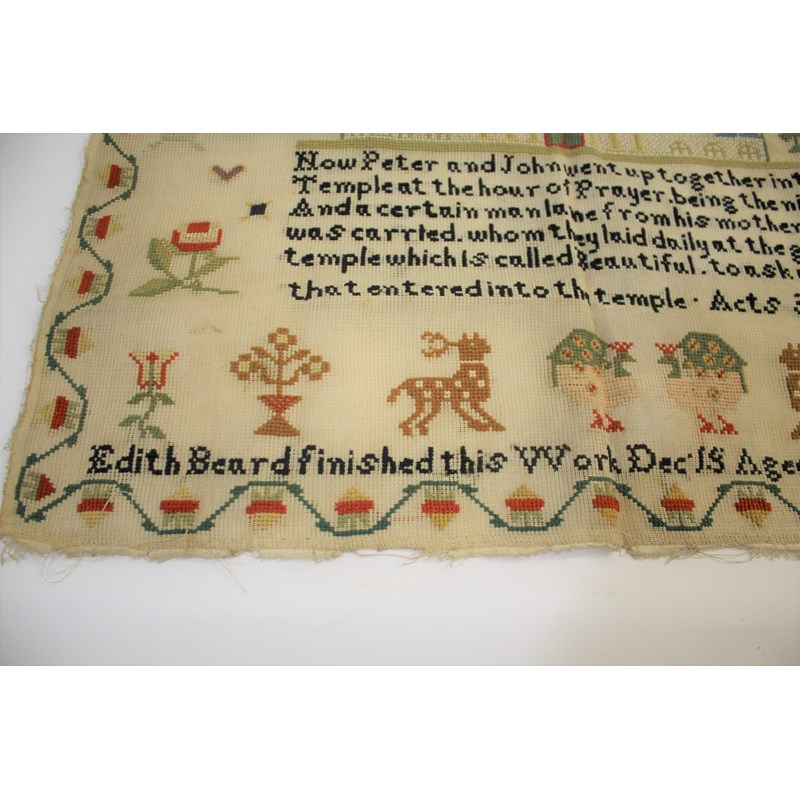 Now Peter and John went up together int
Temple at the hour of Prayer. being the ni
And a certain man lame from his mother
was carried. whom they laid daily at the g
temple which is called Beautiful. to ask
that entered into the temple. Acts 3
Edith Beard finished this Work Dec 15 Aged